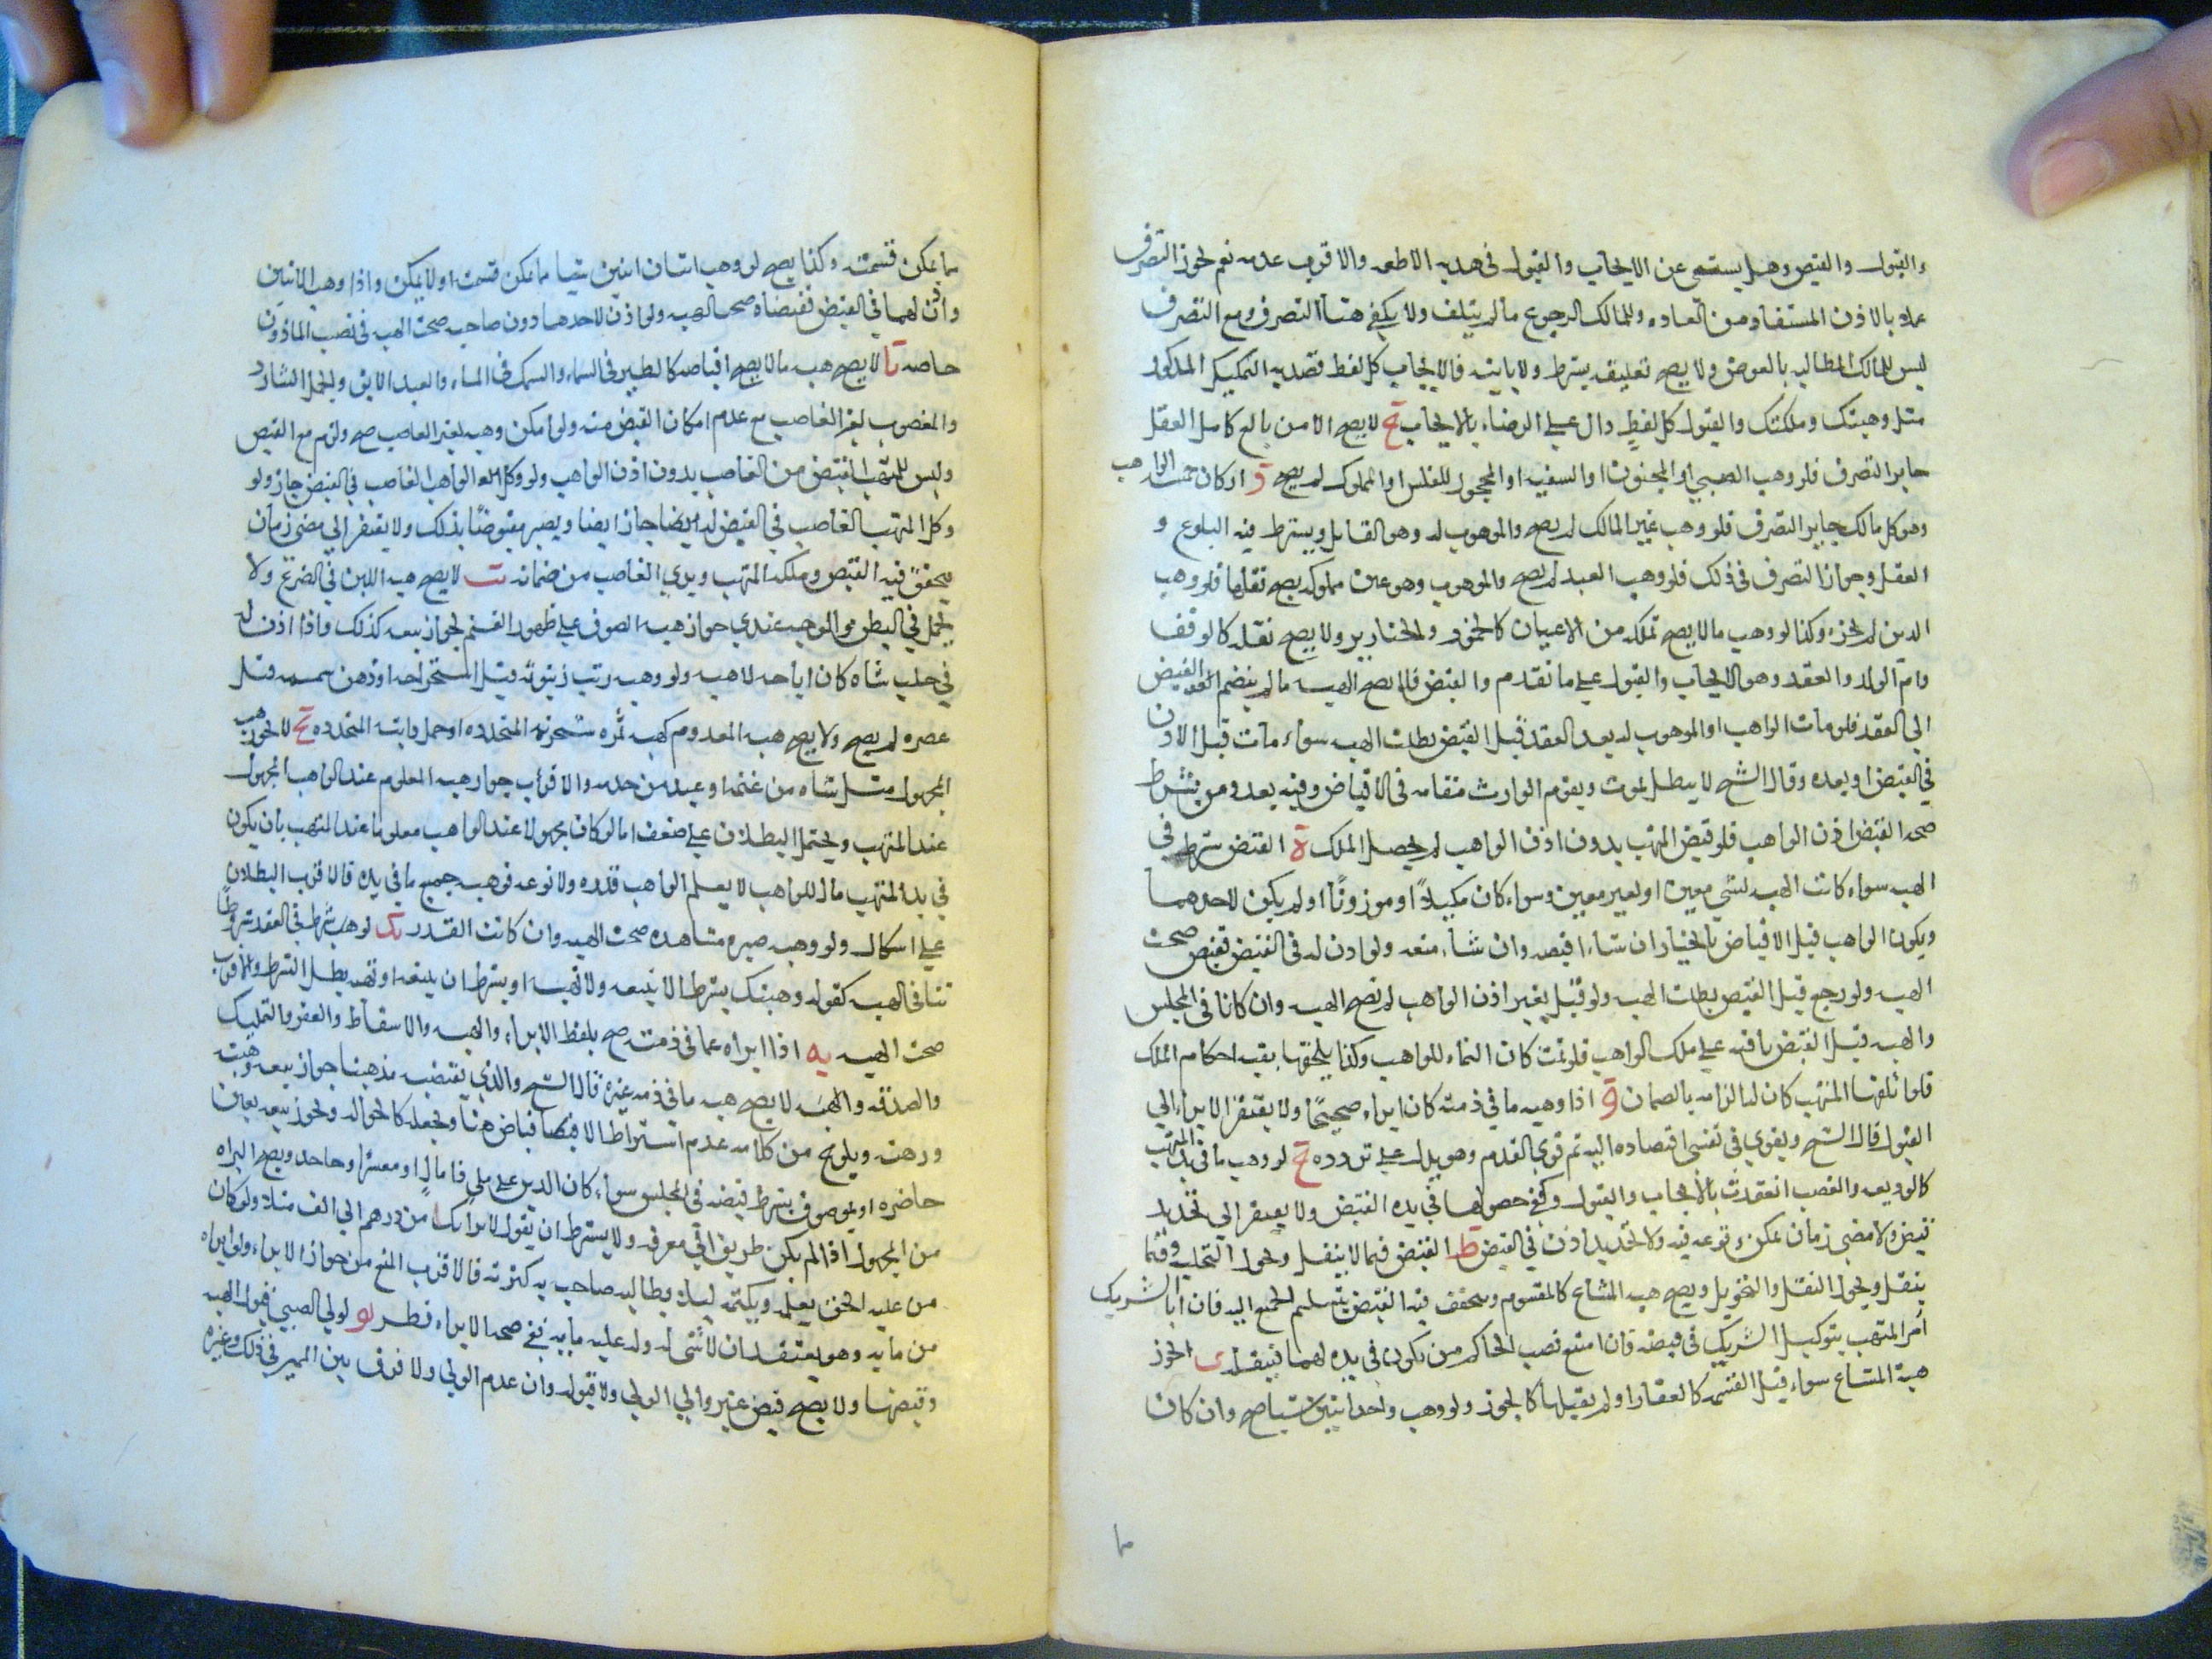 والقبول والقبض وهل يستغنى عن الايجاب والقبول فى هديه الاطعمه والاقرب عدمه نعم يجوز التصرف
عمله بالاذن المستفاد من العاده وللمالك الرجوع ما لم يتلف ولا يكفى هنا التصرف ومع التصرف
ليس للمالك المطالبه بالعوض ولا يصح تعليقه بشرط ولا بابته فالايجاب كل لفظ قصد به التمليك المذكور
مثل وهبتك وملكتك والقبول كل لفظ دال على الرضاء بالايجاب ج لا يصح الا من بالغ كامل العقل
جايز التصرف فلو وهب الصبي او المجنون او السفيه او المحجور للفلس او المملوك لم يصح د اركان الهبه الواهب
وهو كل مالك جايز التصرف فلو وهب غير المالك لم يصح والموهوب له وهو القابل ويشترط فيه البلوغ و
العقل وجواز التصرف فى ذلك فلو وهب العبد لم يصح والموهوب وهو عين مملوكه يصح نقلها فلو وهب
الدين لم يجز وكذا لو وهب ما لا يصح تملكه من الاعيان كالخمور والخنازير ولا يصح نقله كالوقف
وام الولد والعقد وهو الايجاب والقبول على ما تقدم والقبض فلا يصح الهبه ما لم ينضم القبض
الى العقد فلو مات الواهب او الموهوب له بعد العقد قبل القبض بطلت الهبه سواء مات قبل الاذن
في القبض او بعده وقال الشيخ لا يبطل بالموت ويقوم الوارث مقامه فى الاقباض وفيه بعد ومن شرط
صحه القبض اذن الواهب فلو قبض المتهب بدون اذن الواهب لم يحصل الملك ه القبض شرط في
الهبه سواء كانت الهبه لشي معين او لغير معين وسواء كان مكيلا او موزونًا او لم يكن لاحدهما
ويكون الواهب قبل الاقباض بالخيار ان شاء اقبضه وان شاء منعه ولو اذن له فى القبض فقبض صحت
الهبه ولو رجع قبل القبض بطلت الهبه ولو قبل بغير اذن الواهب لم تصح الهبه وان كانا فى المجلس
والهبه قبل القبض باقيه على ملك الواهب فلو نمت كان النماء للواهب وكذا يلحقها بقيه احكام الملك
فلو اتلفها المتهب كان له الزامه بالضمان و اذا وهبه ما في ذمته كان ابراء صحيحًا ولا يفتقر الابراء الى
القبول قال الشيخ ويقوي فى نفسى افتقاده اليه ثم قوي العدم وهو يدل على تردده ح لو وهب ما في يد المتهب
كالوديعه والغصب انعقدت بالايجاب والقبول وكفى حصولها في يده القبض ولا يفتقر الى تجديد
قبض ولا مضى زمان يمكن وقوعه فيه ولا تجديد اذن في القبض ط القبض فيما لا ينقل ويحول التخليه وفيما
ينقل ويحول النقل والتحويل ويصح هبه المشاع كالمقسوم ويتحقق فيه القبض بتسليم الجميع اليه فان ابا الشريك
أمر المتهب بتوكيل الشريك فى قبضه فان امتنع نصب الحاكم من يكون في يده لهما فينقله ى يجوز
هبة المشاع سواء قبل القسمه كالعقار او لم يقبلها كالجوز ولو وهب واحد اثنين شيا صح وان كان
مما يمكن قسمته وكذا يصح لو وهب اثنان اثنين شيا ما يمكن قسمته او لا يمكن واذا وهب الاثنين
واذن لهما في القبض فقبضاه صحت الهبه ولو اذن لاحدهما دون صاحبه صحت الهبه فى نصيب الماذون
خاصه يا لا يصح هبه ما لا يصح اقباضه كالطير فى السماء والسمك فى الماء والعبد الابق والجمل الشارد
والمغصوب لغير الغاصب مع عدم امكان القبض منه ولو امكن وهبه لغير الغاصب صح ولزم مع القبض
وليس للمتهب القبض من الغاصب بدون اذن الواهب ولو وكل الواهب الغاصب في القبض جاز ولو
وكل المتهب الغاصب في القبض له ايضا جاز ايضا ويصير مقبوضًا بذلك ولا يفتقر الى مضى زمان
يتحقق فيه القبض وملكه المتهب ويبري الغاصب من ضمانه يب لا يصح هبه اللبن في الضرع ولا
الحمل في البطن والوجه عندي جواز هبه الصوف على ظهور الغنم لجواز بيعه كذلك واذا اذن له
في حلب شاه كان اباحه لا هبه ولو وهب زيت زيتونه قبل استخراجه او دهن سمسمه قبل
عصره لم يصح ولا يصح هبه المعدوم كهبه ثمره شجرته المتجدده او حمل دابته المتجدده يج لا يجوز هبه
المجهول مثل شاه من غنمه او عبد من خدمه والاقرب جواز هبه المعلوم عند الواهب المجهول
عند المتهب ويحتمل البطلان على ضعف اما لو كان مجهولا عند الواهب معلوما عند المتهب بان يكون
في يد المتهب مال للواهب لا يعلم الواهب قدره ولا نوعه فوهبه جميع ما في يده فالاقرب البطلان
على اشكال ولو وهبه صبره مشاهده صحت الهبه وان كانت القدر يد لو وهب بشرط في العقد شروطًا
تنافى الهبه كقوله وهبتك بشرط الا تبيعه ولا تهبه او بشرط ان يبيعه او تهبه بطل الشرط والاقرب
صحت الهبه يه اذا ابراه عما فى ذمته صح بلفظ الابراء والهبه والاسقاط والعفو والتمليك
والصدقه والهبه لا يصح هبه ما فى ذمه غيره قال الشيخ والذي يقتضيه مذهبنا جواز بيعه وهبته
ورهنه ويلوح من كلامه عدم اشتراط الاقباض هنا ويجعله كالحواله ويجوز بيعه بعين
حاضره او بموصوف بشرط قبضه فى المجلس سواء كان الدين على ملي او معسر او جاحد ويصح البراه
من المجهول اذا لم يكن طريق الى معرفه ولا يشترط ان يقول ابراتك من درهم الى الف مثلا ولو كان
من عليه الحق يعلمه ويكتمه ليلا يطالبه صاحبه به كثرته فالاقرب المنع من جواز الابراء ولو ابراه
من مايه وهو يعتقد ان لا شى له وله عليه مايه ففى صحه الابراء نظر يو لولي الصبي قبول الهبه
وقبضها ولا يصح قبض غير والى الولي ولا قبوله وان عدم الولي ولا فرق بين المميز فى ذلك وغيره